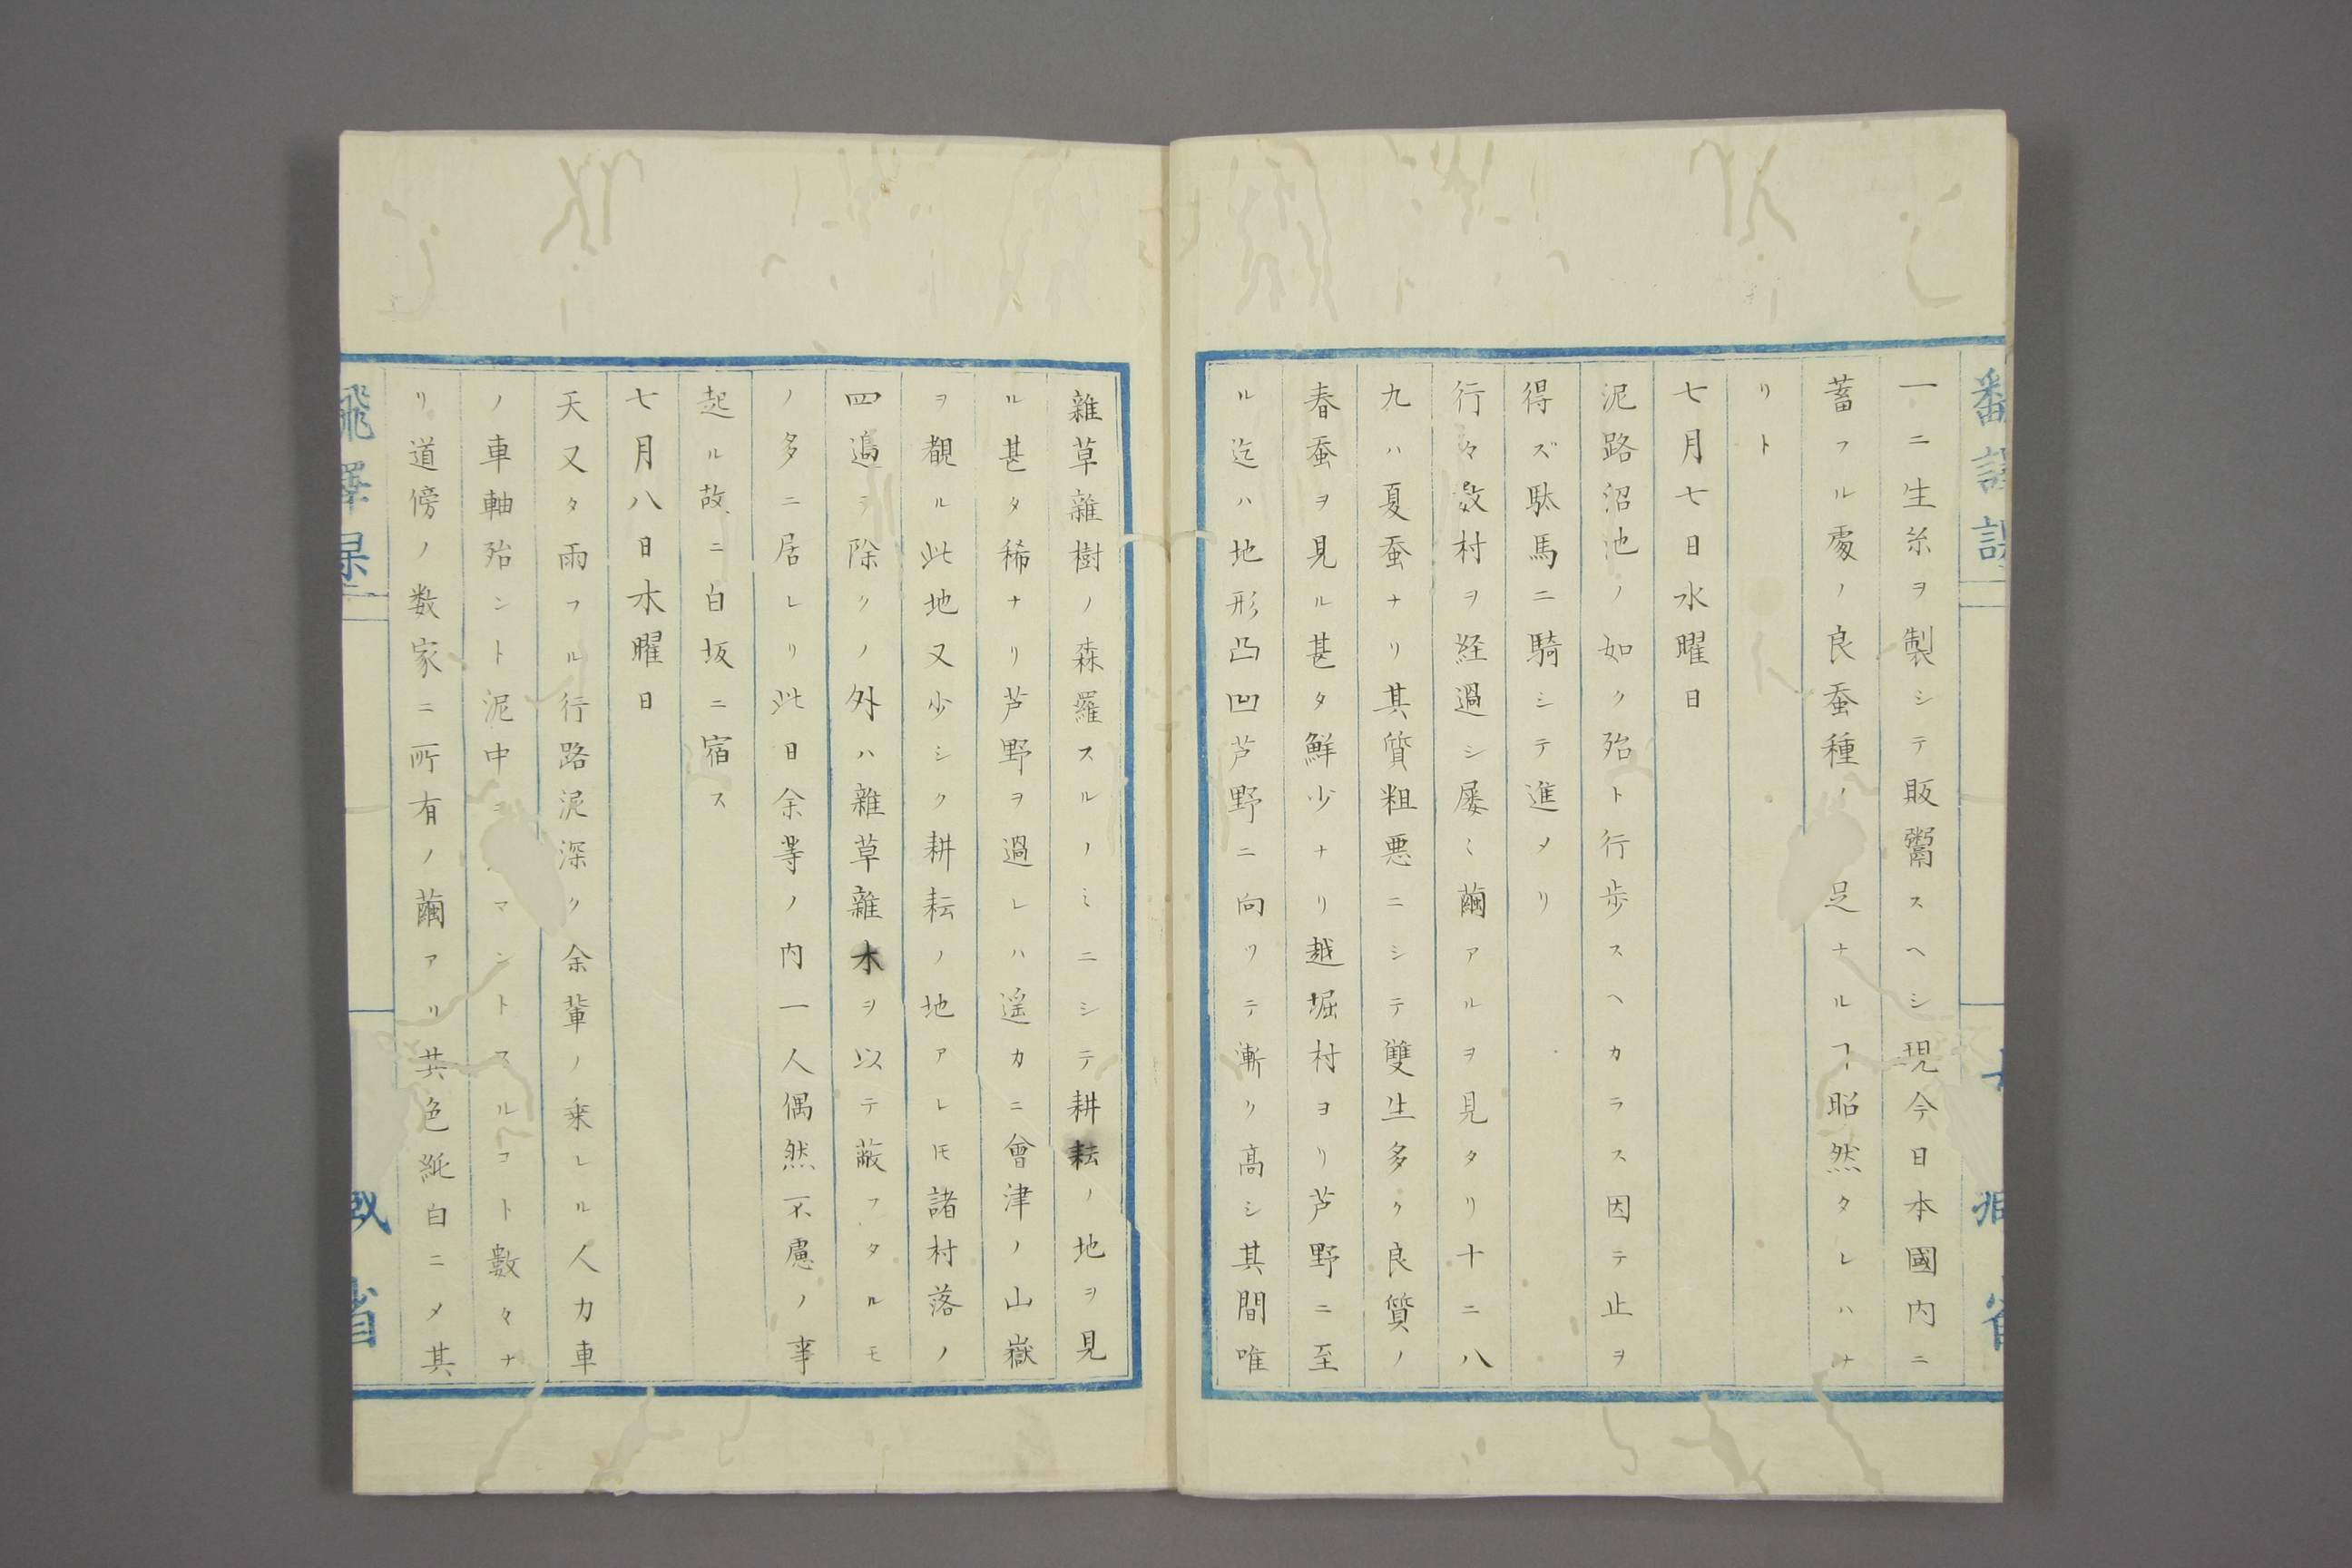 一ニ生糸ヲ製シテ販鬻スヘシ現今日本國内ニ
蓄フル處ノ良蚕種ノ足ナルヿ昭然タレハナ
リト
七月七日水曜日
泥路沼池ノ如ク殆ト行歩スヘカラス因テ止ヲ
得ズ駄馬ニ騎シテ進メリ
行々数村ヲ経過シ屡〻繭アルヲ見タリ十ニ八
九ハ夏蚕ナリ其質粗悪ニシテ雙生多ク良質ノ
春蚕ヲ見ル甚タ鮮少ナリ越堀村ヨリ芦野ニ至
ル迄ハ地形凸凹芦野ニ向ツテ漸ク高シ其間唯
雜草雜樹ノ森羅スルノミニシテ耕耘ノ地ヲ見
ル甚タ稀ナリ芦野ヲ過レハ遥カニ會津ノ山嶽
ヲ觀ル此地又少シク耕耘ノ地アレ𪜈諸村落ノ
四邉ヲ除クノ外ハ雜草雜木ヲ以テ蔽フタルモ
ノ多ニ居レリ此日余等ノ内一人偶然不慮ノ事
起ル故ニ白坂ニ宿ス
七月八日木曜日
天又タ雨フル行路泥深ク余輩ノ乗レル人力車
ノ車軸殆ント泥中ニマントスルコト數々ナ
リ道傍ノ数家ニ所有ノ繭アリ其色純白ニメ其